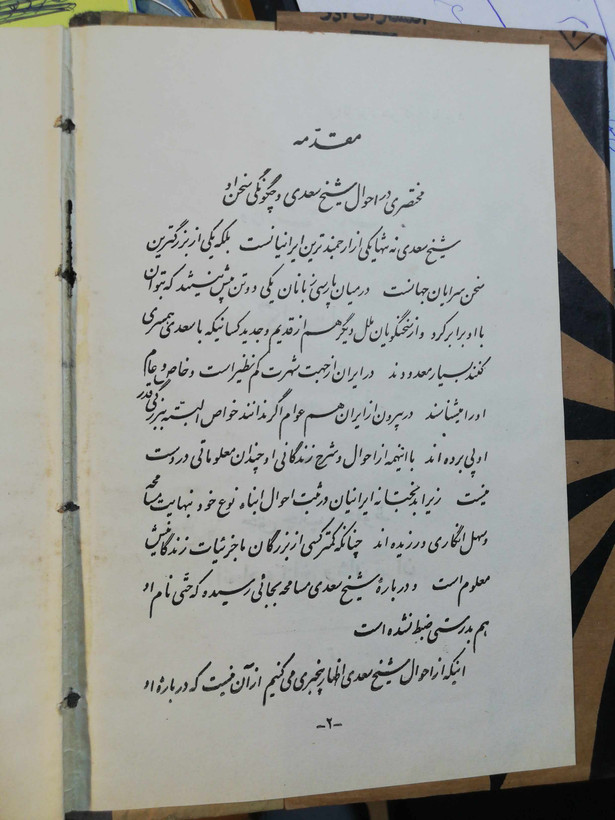 انتشارات
مقدّمه
مختصری در احوال شیخ سعدی و چگونگی سخن او
شیخ سعدی نه تنها یکی از ارجمندترین ایرانیانست بلکه یکی از بزرگترین
سخن سرایان جهانست در میان پارسی زبانان یکی دو تن بیش نیستند که بتوان
با او برابر کرد و از سخنگویان ملل دیگر هم از قدیم و جدید کسانیکه با سعدی همسری
کنند بسیار معدودند در ایران از جهت شهرت کم نظیر است و خاص و عام
او را میشناسند در بیرون از ایران هم عوام اگر ندانند خواص البته به بزرگی قدر
او پی برده اند با اینهمه از احوال و شرح زندگانی او چندان معلوماتی در دست
نیست زیرا بدبختانه ایرانیان در ثبت احوال ابناء نوع خود نهایت مسامحه
و سهل انگاری ورزیده اند چنانکه کمتر کسی از بزرگان ما جزئیات زندگانیش
معلوم است و دربارهٔ شیخ سعدی مسامحه بجائی رسیده که حتّی نام او
هم بدرستی ضبط نشده است
اینکه از احوال شیخ سعدی اظهار بیخبری می کنیم از آن نیست که درباره او
-۲-